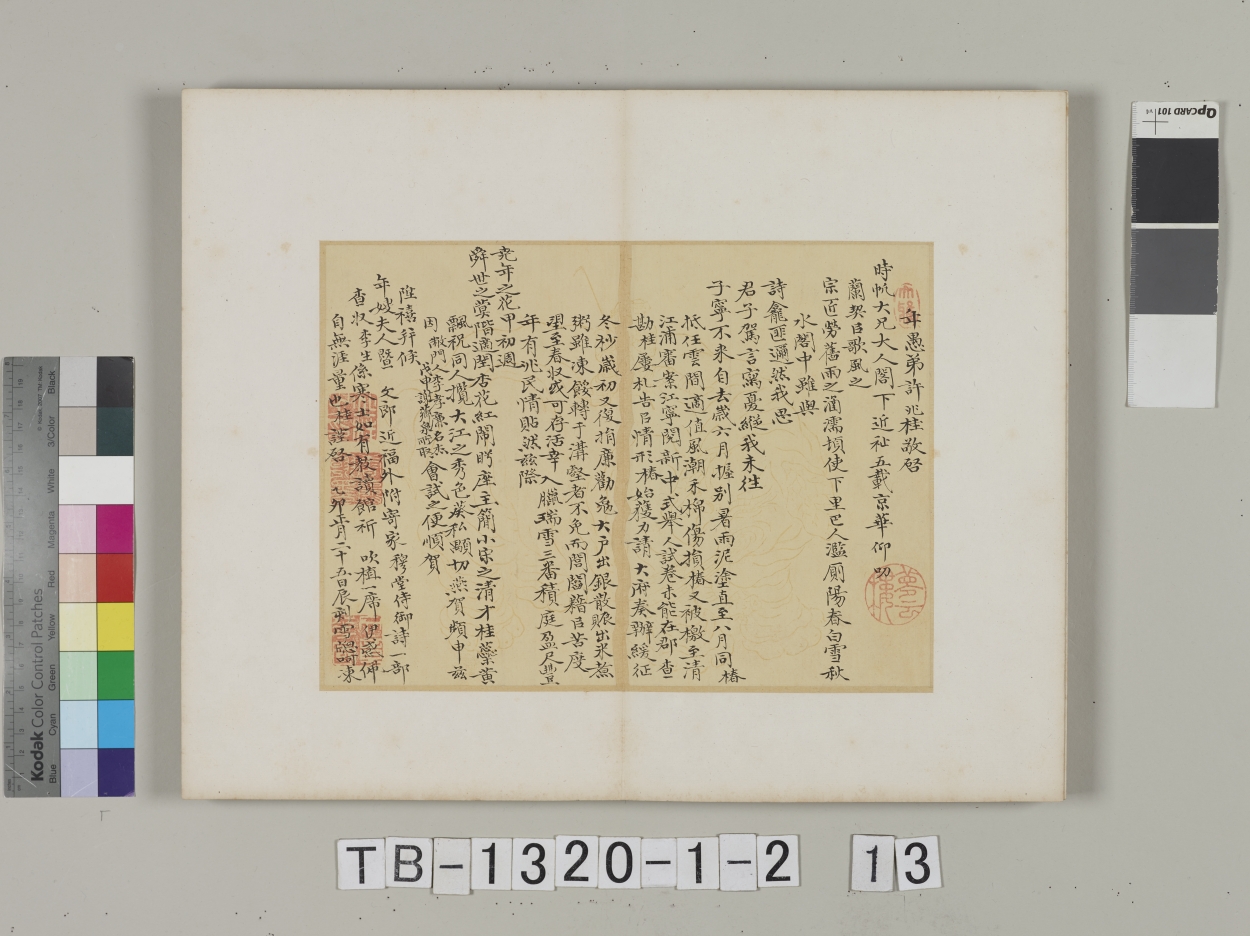 年愚弟許兆桂敬啓
時帆大兄大人閣下近祉五載京華仰叨
蘭契㠯歌風之
宗匠勞舊雨之濡頃使下里巴人濫厠陽春白雪秋
水閣中雖與
詩龕匪遥然我思
君子駕言寫憂縱我未往
子寧不来自去歲六月握别暑雨泥塗直至八月同椿
抵任雲間適值風潮禾棉傷損椿又被檄至清
江浦審案江寧閱新中式舉人試卷未能在郡查
勘桂屢札告㠯情形椿始獲力請大府奏辦緩征
冬杪歲初又復捐廉勸龟大户出銀散賑出米煮
粥雖凍餒轉于溝壑者不免而閭閻藉㠯苦度
望至春収或可存活幸入臘瑞雪三番積庭盈尺豐
年有兆民情貼然兹際
堯年之花甲初週
舜世之蓂階滿閏杏花紅鬧盻座主簡小宋之清才桂蘂黄
飄祝同人攬大江之秀色葵私顒切燕賀頻申兹
因敝門人李孝廉名杰會試之便順賀
陞禧并候
年嫂夫人暨 文郎近福外附寄家穆堂侍御詩一部
查収李生係寒士如有教讀館祈 吹植一席 感佩
自無涯量也桂謹啓 乙卯正月二十五日辰刻雪窓呵凍
Kodak Color Control Patches
Blue Cyan Green Yellow Red Magenta White 3/Color Black
QPCARD 101 v4
TB-1320-1-2 13